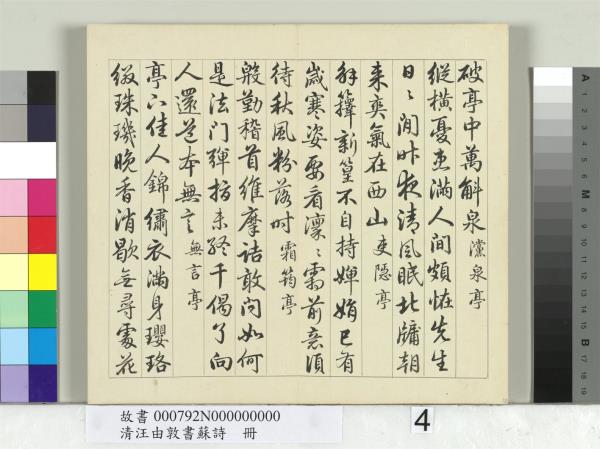 破亭中萬斛泉 濛泉亭
縱橫憂患滿人間頗怪先生
日〻閒昨夜清風眠北牖朝
来爽氣在西山 吏隱亭
解籜新篁不自持嬋娟已有
歲寒姿要看凜〻霜前意須
待秋風粉落時 霜筠亭
殷勤稽首維摩詰敢問如何
是法门彈指未終千偈了向
人還道本無言 無言亭
亭下佳人錦繡衣滿身瓔珞
綴珠璣晚香消歇無尋處花
故書 000792N000000000
清汪由敦書蘇詩 冊
4
A 1 2 3 4 5 6 M 8 9 10 11 12 13 14 15 B 17 18 19